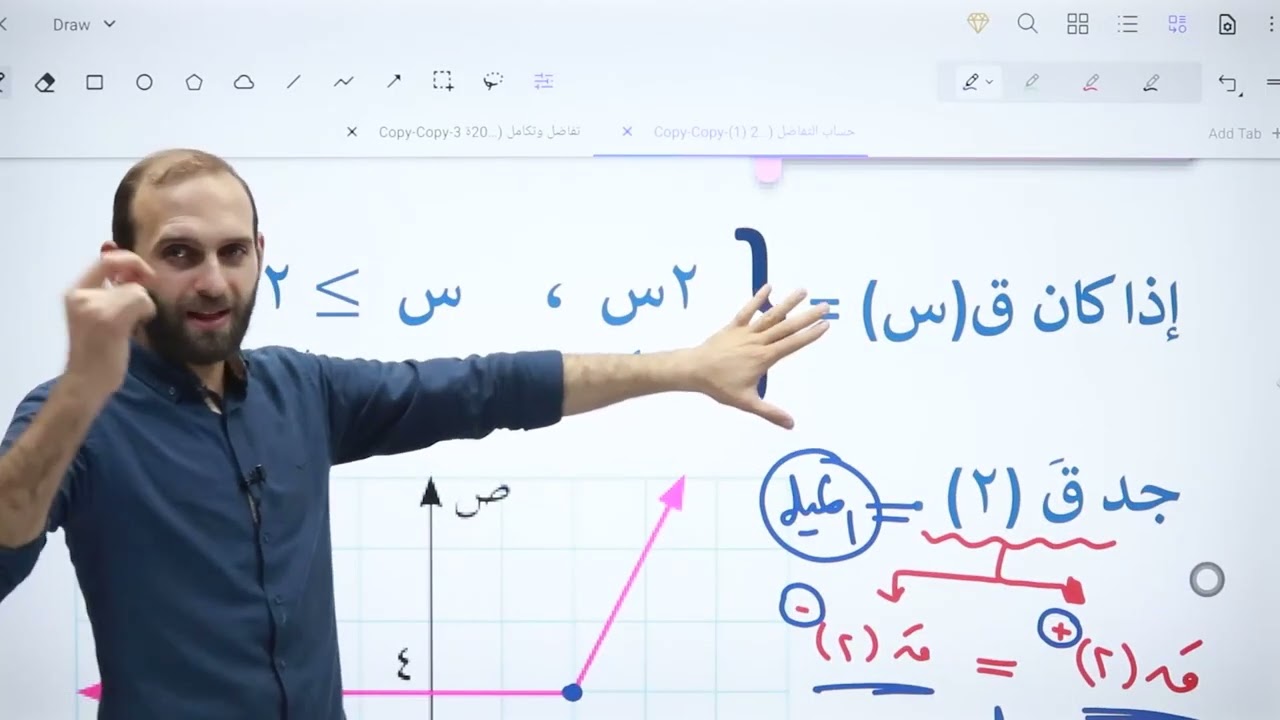 Draw
Copy-Copy-3 تفاضل وتكامل (...20
Copy-Copy-(1) 2 حساب التفاضل (...
Add Tab
إذا كان ق(س) = { ٢س ، س ≥ ٢
جد قَ (٢) =
ص
٤
+ -
قَ (٢) = قَ (٢)